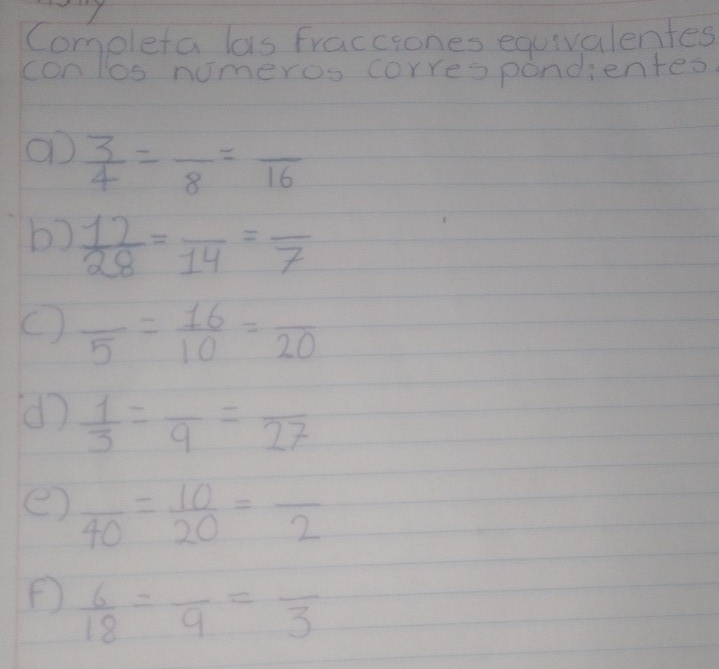 Completa las fracciones equivalentes
con los números correspondientes.
a) 3/4 = /8 = /16
b) 12/28 = /14 = /7
c) /5 = 16/10 = /20
d) 1/3 = /9 = /27
e) /40 = 10/20 = /2
f) 6/18 = /9 = /3